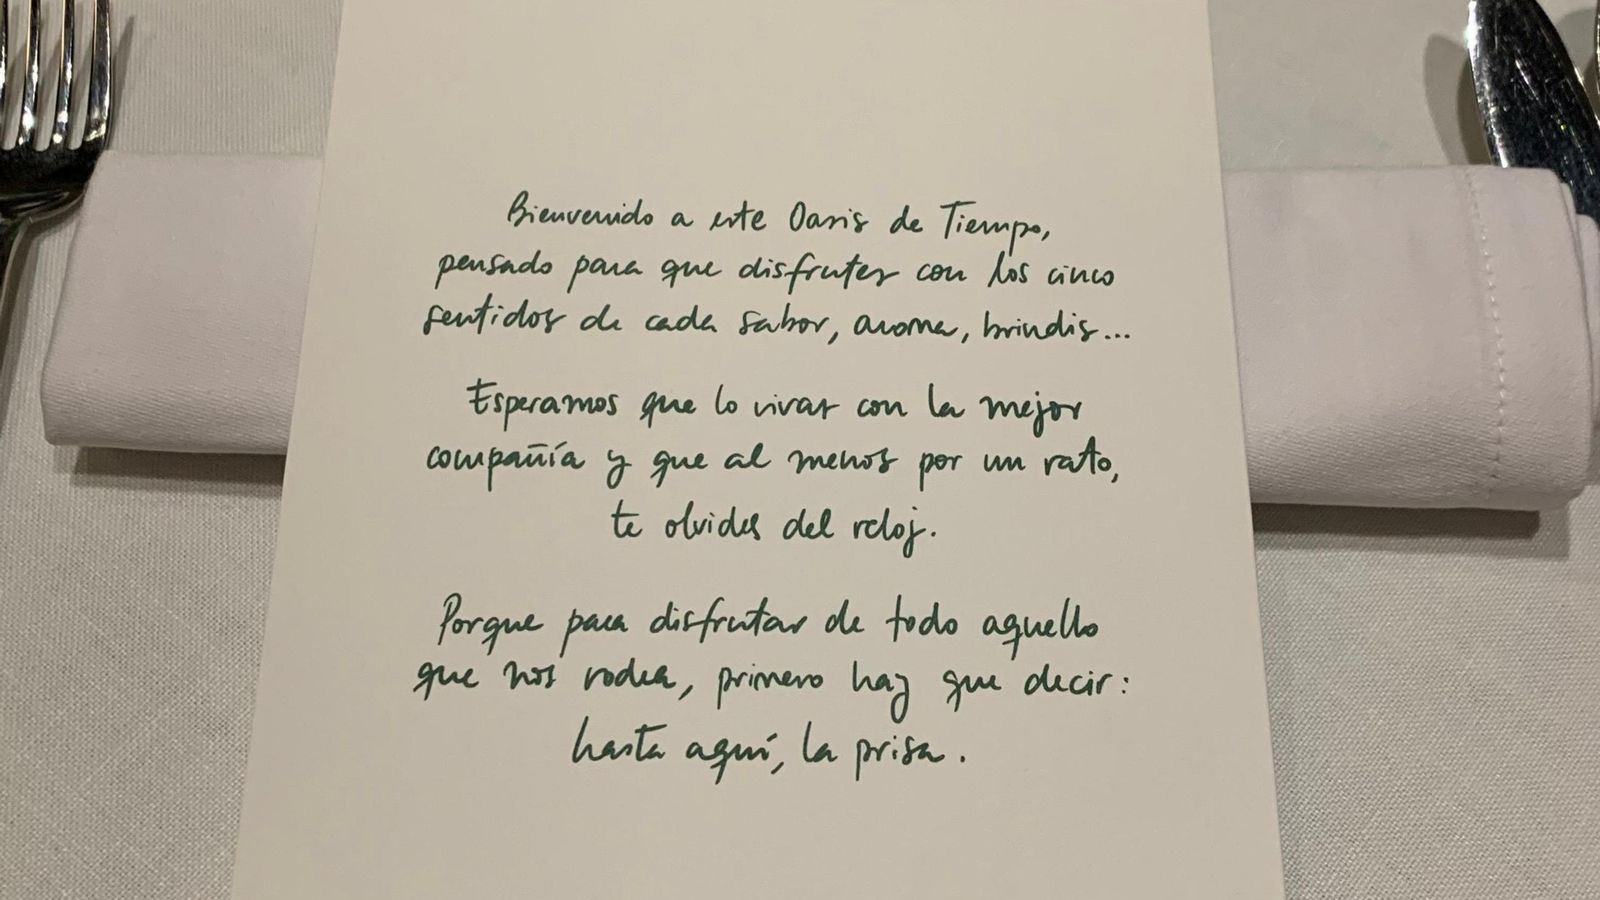 Bienvenido a este Oasis de Tiempo,
pensado para que disfrutes con los cinco
sentidos de cada sabor, aroma, brindis...
Esperamos que lo vivas con la mejor
compañía y que al menos por un rato,
te olvides del reloj.
Porque para disfrutar de todo aquello
que nos rodea, primero hay que decir:
hasta aquí, la prisa.